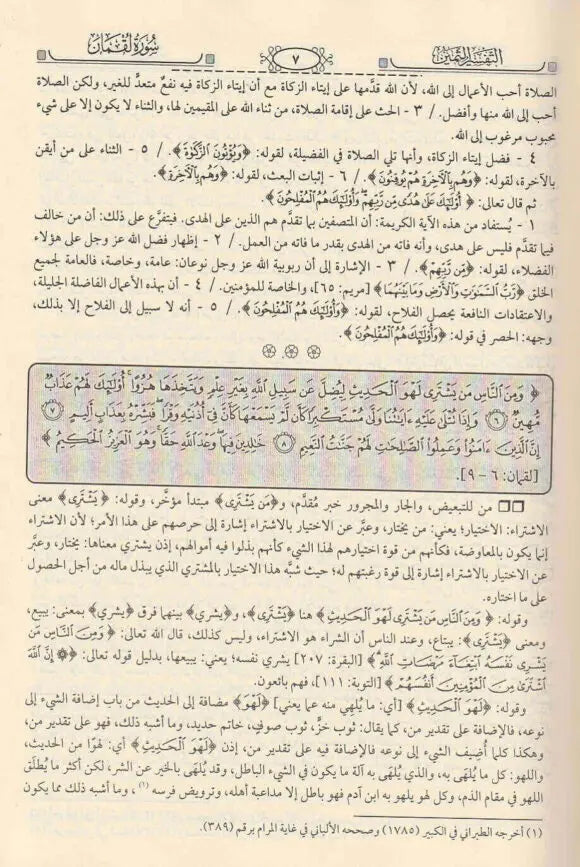 التفسير الثمين
٧
سورة لقمان
الصلاة أحب الأعمال إلى الله، لأن الله قدَّمها على إيتاء الزكاة مع أن إيتاء الزكاة فيه نفعٌ متعدٍّ للغير، ولكن الصلاة
أحب إلى الله منها وأفضل. / ٣ - الحث على إقامة الصلاة، من ثناء الله على المقيمين لها، والثناء لا يكون إلا على شيء
محبوب مرغوب إلى الله.
٤ - فضل إيتاء الزكاة، وأنها تلي الصلاة في الفضيلة، لقوله: ﴿وَيُؤْتُونَ الزَّكَوٰةَ﴾. / ٥ - الثناء على من أيقن
بالآخرة، لقوله: ﴿وَهُم بِالْآخِرَةِ هُمْ يُوقِنُونَ﴾. / ٦ - إثبات البعث، لقوله: ﴿وَهُم بِالْآخِرَةِ﴾.
ثم قال تعالى: ﴿أُولَٰئِكَ عَلَىٰ هُدًى مِّن رَّبِّهِمْ وَأُولَٰئِكَ هُمُ الْمُفْلِحُونَ﴾
١ - يُستفاد من هذه الآية الكريمة: أن المتصفين بما تقدَّم هم الذين على الهدى. فيتفرَّع على ذلك: أن من خالف
فيما تقدَّم فليس على هدى، وأنه فاته من الهدى بقدر ما فاته من العمل. / ٢ - إظهار فضل الله عز وجل على هؤلاء
الفضلاء، لقوله: ﴿مِّن رَّبِّهِمْ﴾. / ٣ - الإشارة إلى أن ربوبية الله عز وجل نوعان: عامة، وخاصة، فالعامة لجميع
الخلق ﴿رَّبُّ السَّمَٰوَٰتِ وَالْأَرْضِ وَمَا بَيْنَهُمَا﴾ [مريم: ٦٥]، والخاصة للمؤمنين. / ٤ - أن بهذه الأعمال الفاضلة الجليلة،
والاعتقادات النافعة يحصل الفلاح، لقوله: ﴿وَأُولَٰئِكَ هُمُ الْمُفْلِحُونَ﴾. / ٥ - أنه لا سبيل إلى الفلاح إلا بذلك،
وجهه: الحصر في قوله: ﴿وَأُولَٰئِكَ هُمُ الْمُفْلِحُونَ﴾.
﴿وَمِنَ النَّاسِ مَن يَشْتَرِى لَهْوَ الْحَدِيثِ لِيُضِلَّ عَن سَبِيلِ اللَّهِ بِغَيْرِ عِلْمٍ وَيَتَّخِذَهَا هُزُوًا أُولَٰئِكَ لَهُمْ عَذَابٌ
مُّهِينٌ ٦ وَإِذَا تُتْلَىٰ عَلَيْهِ ءَايَٰتُنَا وَلَّىٰ مُسْتَكْبِرًا كَأَن لَّمْ يَسْمَعْهَا كَأَنَّ فِىٓ أُذُنَيْهِ وَقْرًا فَبَشِّرْهُ بِعَذَابٍ أَلِيمٍ ٧
إِنَّ الَّذِينَ ءَامَنُوا وَعَمِلُوا الصَّٰلِحَٰتِ لَهُمْ جَنَّٰتُ النَّعِيمِ ٨ خَٰلِدِينَ فِيهَا وَعْدَ اللَّهِ حَقًّا وَهُوَ الْعَزِيزُ الْحَكِيمُ﴾
[لقمان: ٦ - ٩].
من للتبعيض، والجار والمجرور خبر مُقدَّم، و﴿مَن يَشْتَرِى﴾ مبتدأ مؤخَّر، وقوله: ﴿يَشْتَرِى﴾ معنى
الاشتراء: الاختيار؛ يعني: من يختار، وعبَّر عن الاختيار بالاشتراء إشارة إلى حرصهم على هذا الأمر؛ لأن الاشتراء
إنما يكون بالمعاوضة، فكأنهم من قوة اختيارهم لهذا الشيء كأنهم بذلوا فيه أموالهم، إذن يشتري معناها: يختار، وعبَّر
عن الاختيار بالاشتراء إشارة إلى قوة رغبتهم له؛ حيث شبَّه هذا الاختيار بالمشتري الذي يبذل ماله من أجل الحصول
على ما اختاره.
وقوله: ﴿وَمِنَ النَّاسِ مَن يَشْتَرِى لَهْوَ الْحَدِيثِ﴾ هنا ﴿يَشْتَرِى﴾، و﴿يشري﴾ بينهما فرق ﴿يشري﴾ بمعنى: يبيع،
ومعنى ﴿يَشْتَرِى﴾: يبتاع، وعند الناس أن الشراء هو الاشتراء، وليس كذلك، قال الله تعالى: ﴿وَمِنَ النَّاسِ مَن
يَشْرِى نَفْسَهُ ابْتِغَآءَ مَرْضَاتِ اللَّهِ﴾ [البقرة: ٢٠٧] يشري نفسه؛ يعني: يبيعها، بدليل قوله تعالى: ﴿۞ إِنَّ اللَّهَ
اشْتَرَىٰ مِنَ الْمُؤْمِنِينَ أَنفُسَهُمْ﴾ [التوبة: ١١١]، فهم بائعون.
وقوله: ﴿لَهْوَ الْحَدِيثِ﴾ [أي: ما يُلهِي منه عما يعني] ﴿لَهْوَ﴾ مضافة إلى الحديث من باب إضافة الشيء إلى
نوعه، فالإضافة على تقدير من، كما يقال: ثوب خزٍّ، ثوب صوفٍ، خاتم حديد، وما أشبه ذلك، فهو على تقدير من،
وهكذا كلما أُضيف الشيء إلى نوعه فالإضافة فيه على تقدير من، إذن ﴿لَهْوَ الْحَدِيثِ﴾ أي: لهوًا من الحديث،
واللهو: كل ما يُلهى به، والذي يُلهَى به آلة ما يكون في الشيء الباطل، وقد يُلهَى بالخير عن الشر، لكن أكثر ما يُطلَق
اللهو في مقام الذم، وكل لهو يلهو به ابن آدم فهو باطل إلا مداعبة أهله، وترويض فرسه (١)، وما أشبه ذلك مما يكون
(١) أخرجه الطبراني في الكبير (١٧٨٥) وصححه الألباني في غاية المرام برقم (٣٨٩).